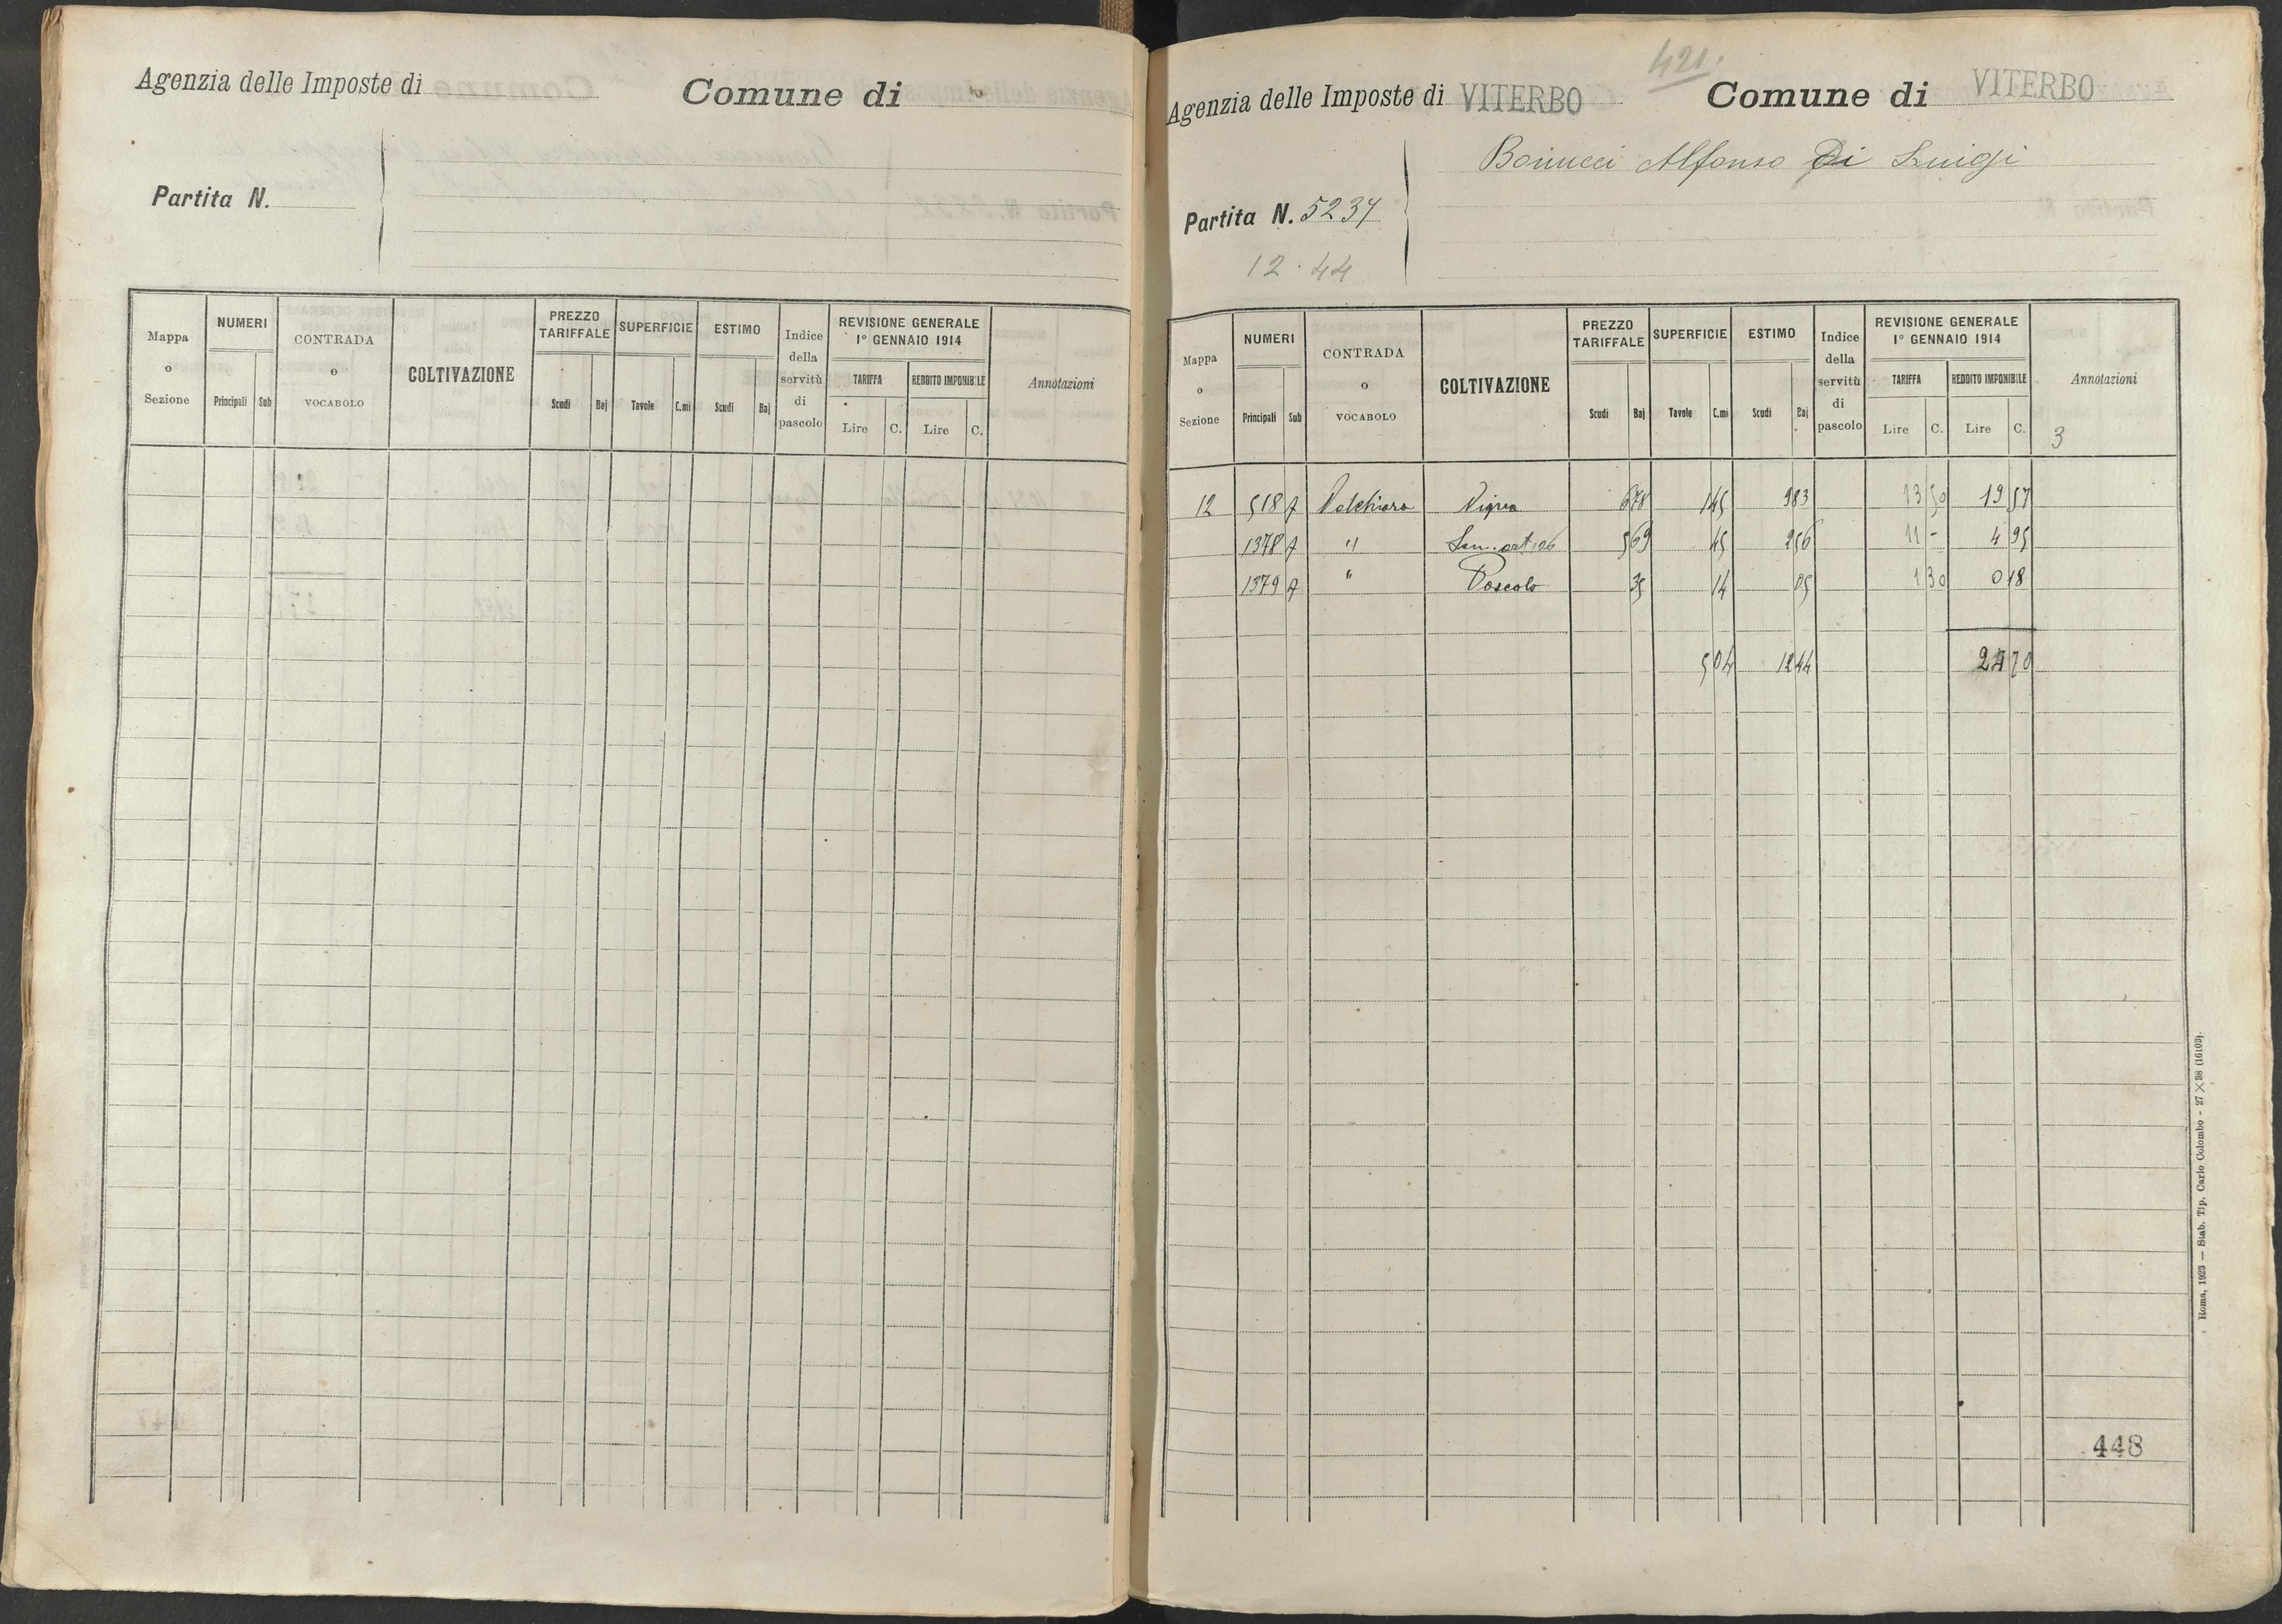 Agenzia delle Imposte di Comune di
Partita N.
Mappa o Sezione NUMERI Principali Sub CONTRADA o VOCABOLO COLTIVAZIONE PREZZO TARIFFALE Scudi Baj SUPERFICIE Tavole C.mi ESTIMO Scudi Baj Indice della servitù di pascolo REVISIONE GENERALE 1° GENNAIO 1914 TARIFFA Lire C. REDDITO IMPONIBILE Lire C. Annotazioni
421.
Agenzia delle Imposte di VITERBO Comune di VITERBO
Bonucci Alfonso Di Luigi
Partita N. 5237
12.44
Mappa o Sezione NUMERI Principali Sub CONTRADA o VOCABOLO COLTIVAZIONE PREZZO TARIFFALE Scudi Baj SUPERFICIE Tavole C.mi ESTIMO Scudi Baj Indice della servitù di pascolo REVISIONE GENERALE 1° GENNAIO 1914 TARIFFA Lire C. REDDITO IMPONIBILE Lire C. Annotazioni
3
12 518 Palchiara Vigna 6 78 1 45 9 83 13 50 19 57
1378 " Sem. art. 5 69 45 2 56 11 - 4 95
1379 " Pascolo 35 14 05 1 30 0 18
5 04 12 44 24 70
448
Roma, 1923 — Stab. Tip. Carlo Colombo - 27 × 38 (16103).